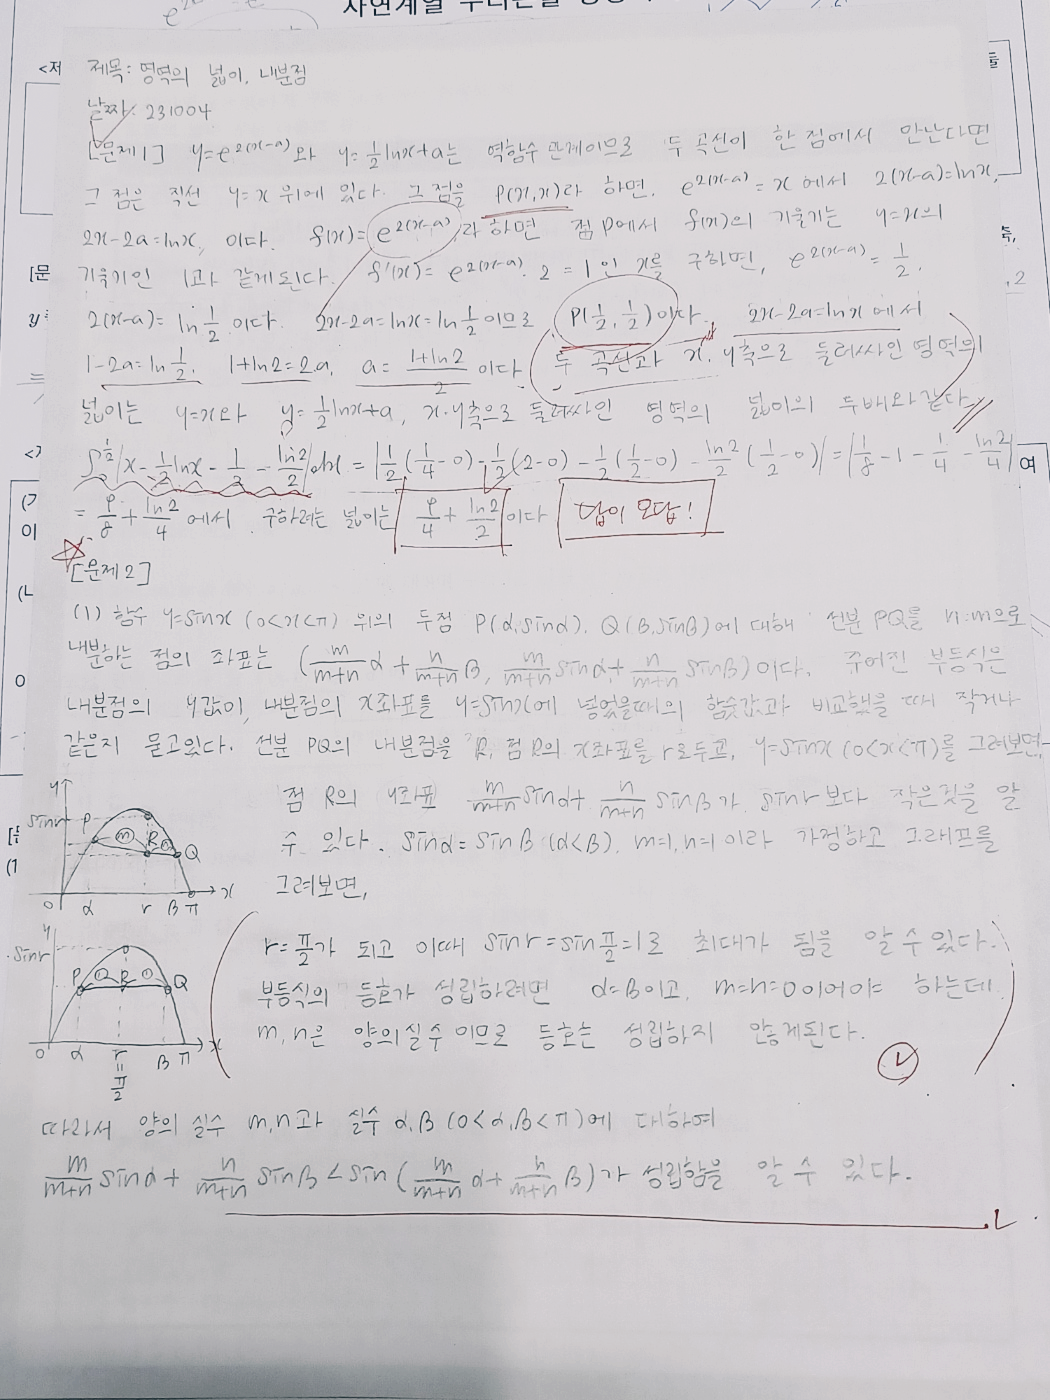 <저
제목: 영역의 넓이, 내분점
날짜: 231004
[문제1] y=e^{2(x-a)}와 y=½lnx+a는 역함수 관계이므로 두 곡선이 한 점에서 만난다면
그 점은 직선 y=x 위에 있다. 그 점을 P(x,x)라 하면, e^{2(x-a)}=x 에서 2(x-a)=lnx,
2x-2a=lnx, 이다. f(x)=e^{2(x-a)}라 하면 점 P에서 f(x)의 기울기는 y=x의
[문
기울기인 1과 같게된다. f'(x)=e^{2(x-a)}·2=1인 x를 구하면, e^{2(x-a)}=½,
,2
y
2(x-a)=ln½이다. 2x-2a=lnx=ln½이므로 P(½,½)이다. 2x-2a=lnx에서
1-2a=ln½, 1+ln2=2a, a=(1+ln2)/2 이다. 두 곡선과 x, y축으로 둘러싸인 영역의
넓이는 y=x와 y=½lnx+a, x·y축으로 둘러싸인 영역의 넓이의 두배와 같다.
∫₀^{1/2}|x-½lnx-½-ln2/2|dx=|½(¼-0)-½(2-0)-½(½-0)-ln2/2(½-0)|=|⅛-1-¼-ln2/4|
여
=9/8+ln2/4 에서 구하려는 넓이는 9/4+ln2/2 이다 답이 오답!
이
[문제2]
(1) 함수 y=sinx (0<x<π) 위의 두점 P(α,sinα), Q(β,sinβ)에 대해 선분 PQ를 n:m으로
내분하는 점의 좌표는 (m/(m+n) α + n/(m+n) β, m/(m+n) sinα + n/(m+n) sinβ)이다. 주어진 부등식은
내분점의 y값이, 내분점의 x좌표를 y=sinx에 넣었을때의 함숫값과 비교했을 때 작거나
같은지 묻고있다. 선분 PQ의 내분점을 R, 점 R의 x좌표를 r로두고, y=sinx (0<x<π)를 그려보면,
y sinr P m R n Q O α r β π x
점 R의 y좌표 m/(m+n) sinα + n/(m+n) sinβ가 sinr보다 작은것을 알
수 있다. sinα=sinβ (α<β), m=1, n=1이라 가정하고 그래프를
그려보면,
y sinr P ① R ① Q O α r = π/2 β π x
r=π/2가 되고 이때 sinr=sinπ/2=1로 최대가 됨을 알 수 있다.
부등식의 등호가 성립하려면 α=β이고, m=n=0이어야 하는데
m, n은 양의실수 이므로 등호는 성립하지 않게된다.
따라서 양의 실수 m,n과 실수 α,β (0<α,β<π)에 대하여
m/(m+n) sinα + n/(m+n) sinβ < sin(m/(m+n) α + n/(m+n) β)가 성립함을 알 수 있다.